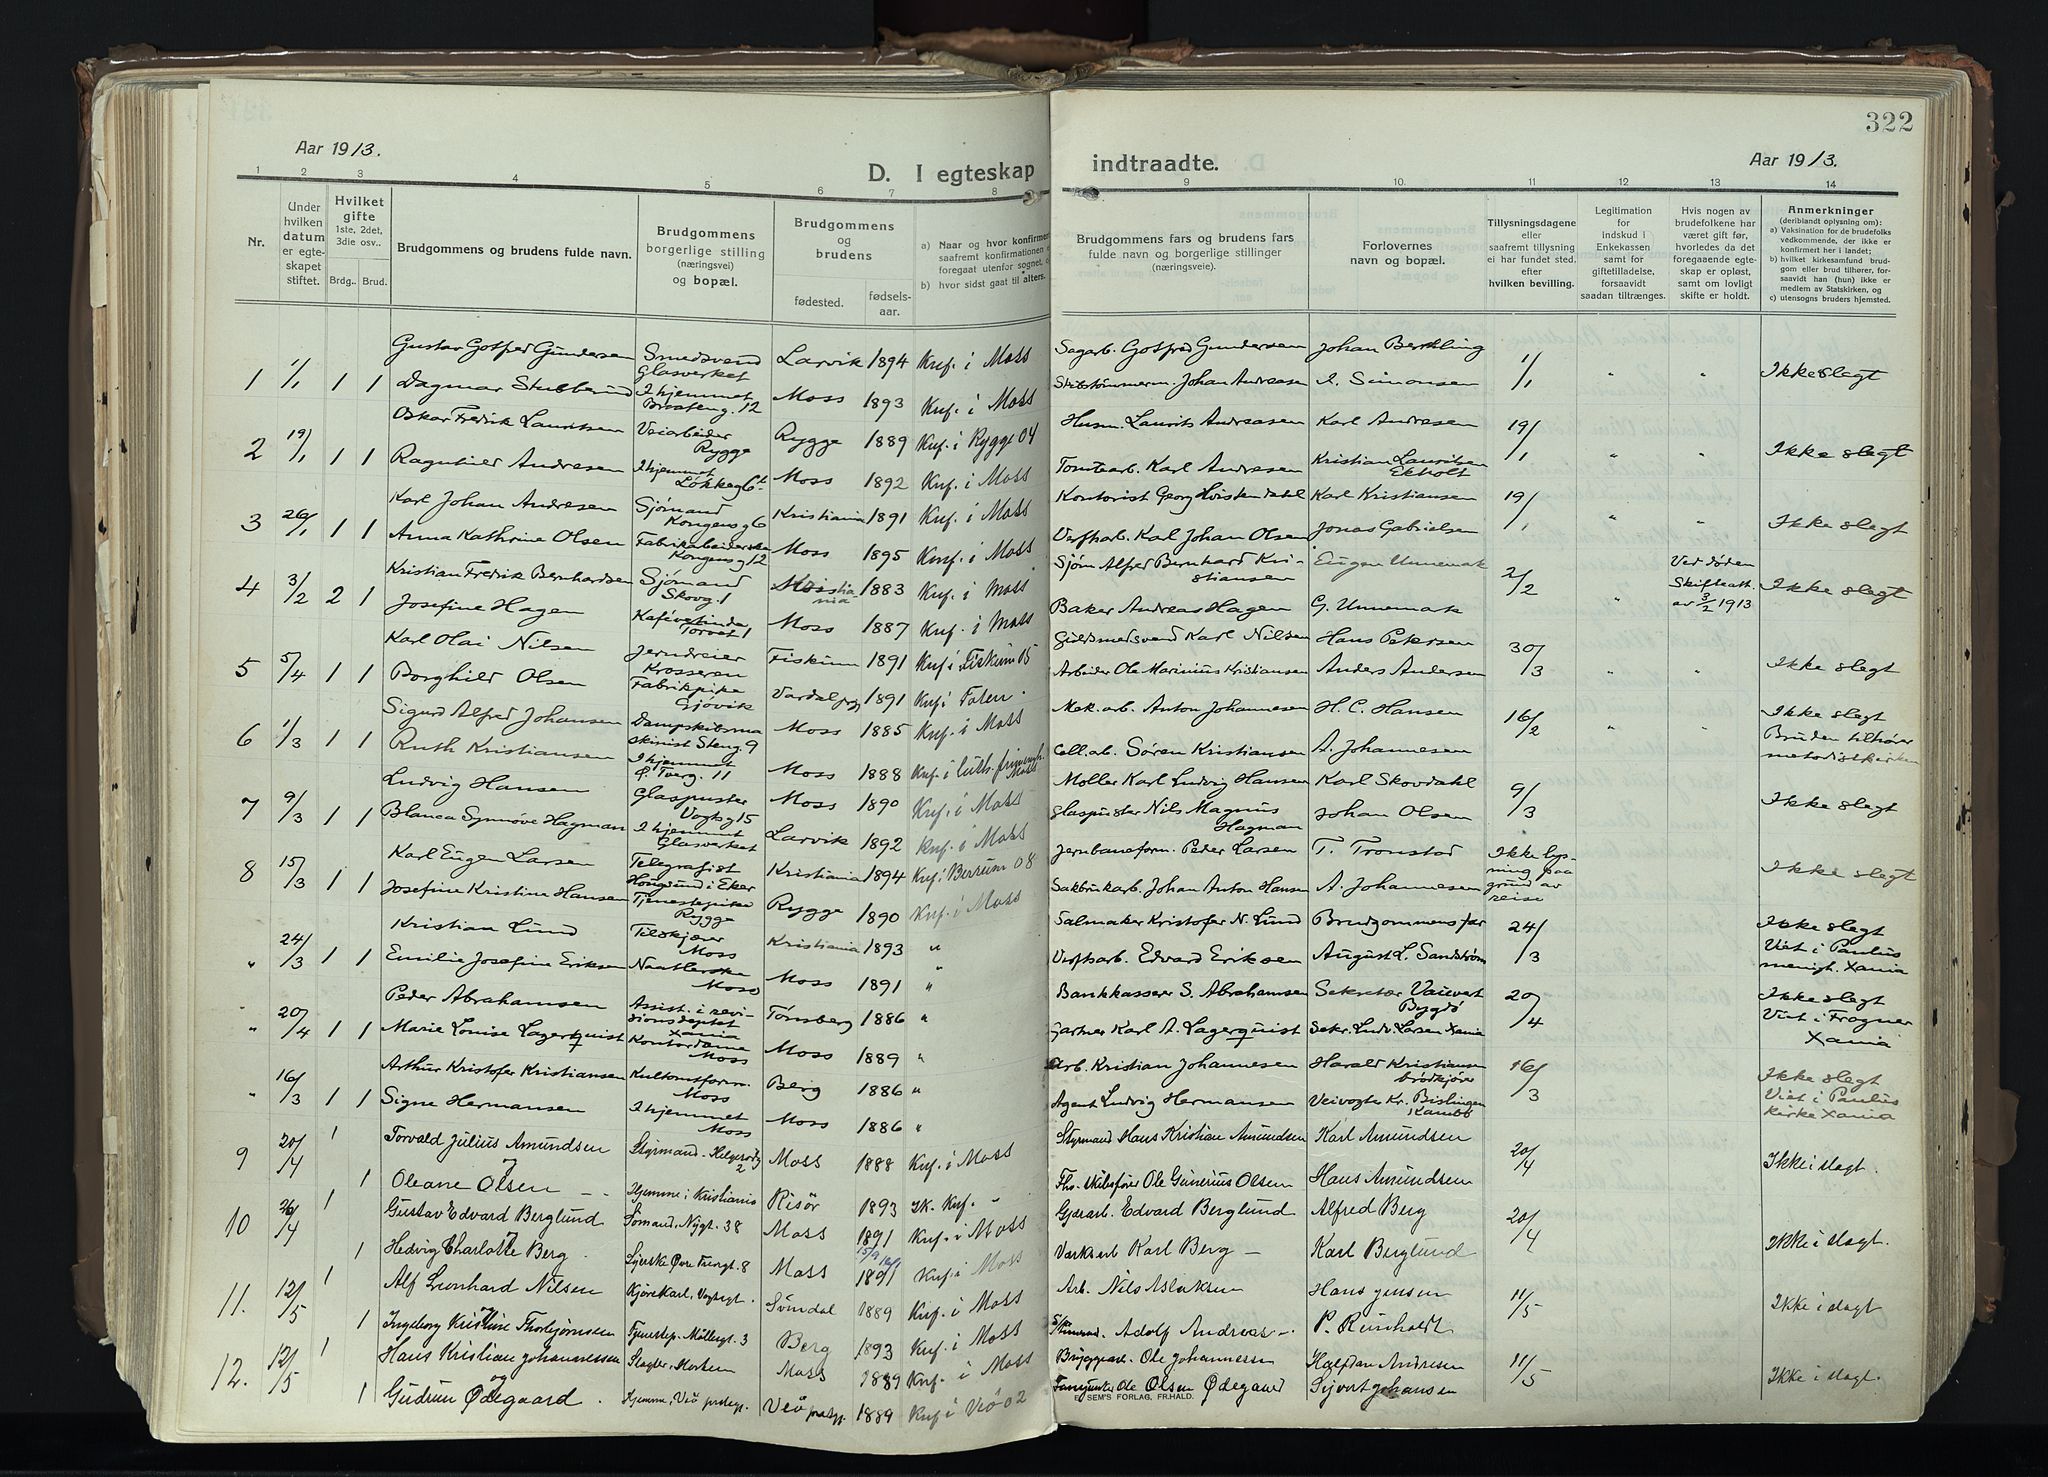 322
Aar 1913.
D. I egteskap indtraadte.
Aar 1913.
1 2 3 4 5 6 7 8 9 10. 11 12 13 14
Nr.
Under hvilken datum er egteskapet stiftet.
Hvilket gifte 1ste, 2det, 3die osv..
Brdg.. Brud.
Brudgommens og brudens fulde navn.
Brudgommens borgerlige stilling (næringsvei) og bopæl.
Brudgommens og brudens
fødested. fødsels-aar.
a) Naar og hvor konfirmert
saafremt konfirmationen
foregaat utenfor sognet,
b) hvor sidst gaat til alters.
Brudgommens fars og brudens fars fulde navn og borgerlige stillinger (næringsveie).
Forlovernes navn og bopæl.
Tillysningsdagene eller saafremt tillysning ei har fundet sted. efter hvilken bevilling.
Legitimation for indskud i Enkekassen samt for giftetilladelse, forsaavidt saadan tiltrænges.
Hvis nogen av brudefolkene har været gift før, hvorledes da det foregaaende egteskap er opløst, samt om lovligt skifte er holdt.
Anmerkninger
(deriblandt oplysning om):
a) Vaksination for de brudefolks vedkommende, der ikke er konfirmert her i landet;
b) hvilket kirkesamfund brudgom eller brud tilhører, forsaavidt han (hun) ikke er medlem av Statskirken, og
c) utensogns bruders hjemsted.
1 1/1 1 1 Gustav Gotfred Gundersen Smedsvend Glasverket Larvik 1894 Knf. i Moss Sagarb. Gotfred Gundersen Johan Berthling 1/1 " " Ikke slegt
Dagmar Stubberud I hjemmet Braateng. 12 Moss 1893 Knf. i Moss Skibstømmerm. Johan Andreasen I. Simonsen
2 19/1 1 1 Oskar Fredrik Lauritsen Veiarbeider Rygge Rygge 1889 Knf. i Rygge 04 Husm. Laurits Andreasen Karl Andresen 19/1 " " Ikke slegt
Ragnhild Andresen I hjemmet Løkkeg 6 Moss 1892 Knf. i Moss Tomtearb. Karl Andresen Kristian Lauritsen Ekholt
3 26/1 1 1 Karl Johan Andresen Sjømand Kongensg 6 Kristiania 1891 Knf. i Moss Kontorist Georg Hvistendahl Karl Kristiansen 19/1 " " Ikke slegt
Anna Kathrine Olsen Fabrikarbeiderske Kongensg 12 Moss 1895 Knf. i Moss Verftarb. Karl Johan Olsen Jonas Gabrielsen
4 3/2 2 1 Kristian Fredrik Bernhardsen Sjømand Skovg. 1 1883 Knf. i Moss Sjøm Alfred Bernhard Kristiansen Eugen Unnemark 2/2 " Ved døden Skifteatt. av 3/2 1913 Ikke slegt
Josefine Hagen Kafévertinde Torvet 1 Moss 1887 Knf. i Moss Baker Andreas Hagen G. Unnemark
5 5/4 1 1 Karl Olai Nilsen Jerndreier Krosseren Fiskum 1891 Knf. i Fiskum 05 Guldsmedsvend Karl Nilsen Hans Petersen 30/3 " " Ikke slegt
Borghild Olsen Fabrikpike Gjøvik Vardal 1891 Knf. i Toten. Arbeider Ole Marinius Kristiansen Anders Andersen
6 1/3 1 1 Sigurd Alfred Johansen Dampskibsmaskinist Steng. 9 Moss 1885 Knf. i Moss Mek. arb. Anton Johannesen H. C. Hansen 16/2 " " Ikke slegt Bruden tilhører metodistkirken
Ruth Kristiansen I hjemmet Ø. Tverg. 11 Moss 1888 Knf. i luth. frimenh. Moss Cell. ab. Søren Kristiansen A. Johannesen
7 9/3 1 1 Ludvig Hansen Glaspuster Vogtsg 15 Moss 1890 Knf. i Moss Møller Karl Ludvig Hansen Karl Skovdahl 9/3 Ikke slegt
Blanca Synnøve Hagman I hjemmet Glasverket Larvik 1892 Knf. i Moss Glaspuster Nils Magnus Hagman Johan Olsen
8 15/3 1 1 Karl Eugen Larsen Telegrafist Hongsund i Eker Kristiania 1894 Knf. i Berrum 08 Jernbaneform. Peder Larsen T. Tronstad Ikke lysning paa grund av reise Ikke slegt
Josefine Kristine Hansen Tjenestepike Rygge Rygge 1890 Knf. i Moss Sakbrukarb. Johan Anton Hansen A. Johannesen
" 24/3 1 1 Kristian Lund Tilskjærer Moss Kristiania 1893 " Salmaker Kristofer N. Lund Brudgommens far 24/3 Ikke slegt Viet i Paulus menigh. Xania
Emilie Josefine Eriksen Naatlerske Moss Moss 1891 " Verftsarb. Edvard Eriksen August L. Sandstrøm
" 20/4 1 1 Peder Abrahamsen Assist. i revisionsdeptet Xania Tønsberg 1886 " Bankkasserer S. Abrahamsen Sekretær Vauvert Bygdø 20/4 Ikke slegt Viet i Frogner Xania
Marie Louise Lagerquist Kontordame Moss Moss 1889 " Gartner Karl A. Lagerquist Sekr. Ludv. Larsen Xania
" 16/3 1 1 Arthur Kristofer Kristiansen Moss Berg 1886 " Arb. Kristian Johannesen Harald Kristiansen brødkjører 16/3 Ikke slegt Viet i Paulus kirke Xania
Signe Hermansen I hjemmet Moss Moss 1886 " Agent Ludvig Hermansen Veivogter Kr. Bislingen Kambo
9 20/4 1 Torvald Julius Amundsen Styrmand Moss 1888 Knf. i Moss Styrmand Hans Kristian Amundsen Karl Amundsen 20/4 Ikke i slagt.
1 Oleane Olsen Hjemme i Kristiania Risör 1893 Knf. " Fhv. skibsfører Ole Gunerius Olsen Hans Amundsen
10 26/4 1 Gustav Edvard Berglund Sømand, Nygt. 38 Moss 1891 Knf. i Moss Gjærarb. Edvard Berglund Alfred Berg 20/4 Ikke i slagt.
1 Hedvig Charlotte Berg Syerske Øvre Tvergt. 8 Moss 1891 Knf. i Moss Værksarb Karl Berg Karl Berglund
11. 12/5 1 Alf Leonhard Nilsen Kjørekarl, Vogtsgt. Svindal 1889 Knf. i Moss Arb. Nils Aslaksen Hans Jensen 11/5 Ikke i slagt
1 Ingeborg Kristine Thorbjørnsen Tjenestep. Møllergt. 3 Berg 1893 Knf. i Moss Adolf Andreas P. Reinholdt
12. 12/5 1 Hans Kristian Johannessen Slagter, Horten Moss 1889 Knf. i Moss Ole Johannessen Halfdan Andresen 11/5 Ikke i slagt.
1 Gudrun Ødegaard. Hjemme, Veö prstegj. Veö prstgj. 1889 Knf i Veö 02 Ole Olsen Ødegaard Sivert Johansen
SEM'S FORLAG, FR.HALD.